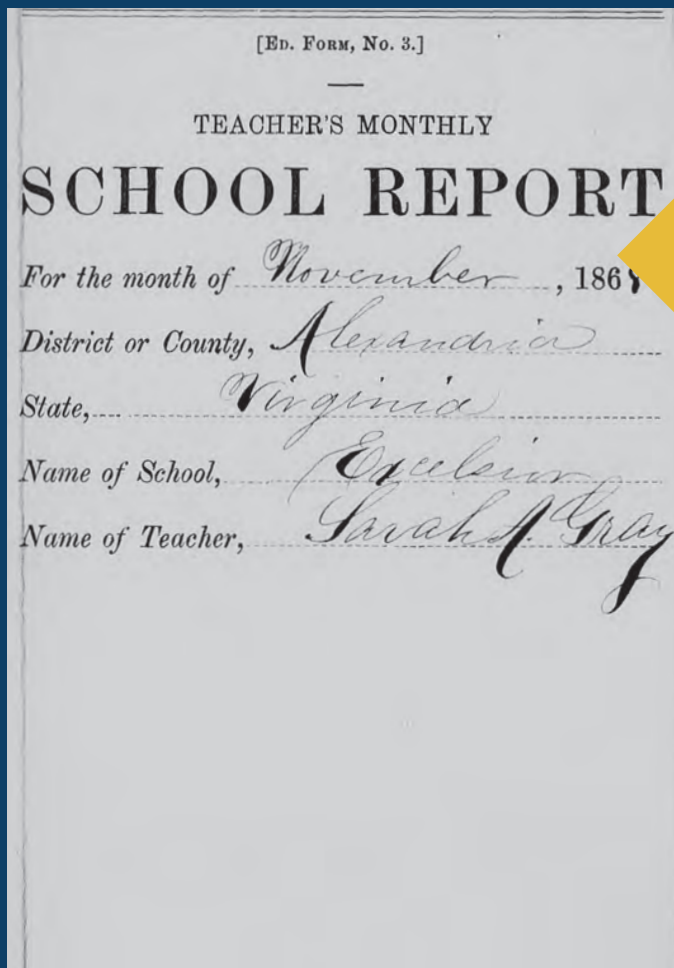 [ED. FORM, NO. 3.]
TEACHER'S MONTHLY
SCHOOL REPORT
For the month of November, 186
District or County, Alexandria
State, Virginia
Name of School, Excelsior
Name of Teacher, Sarah A. Gray